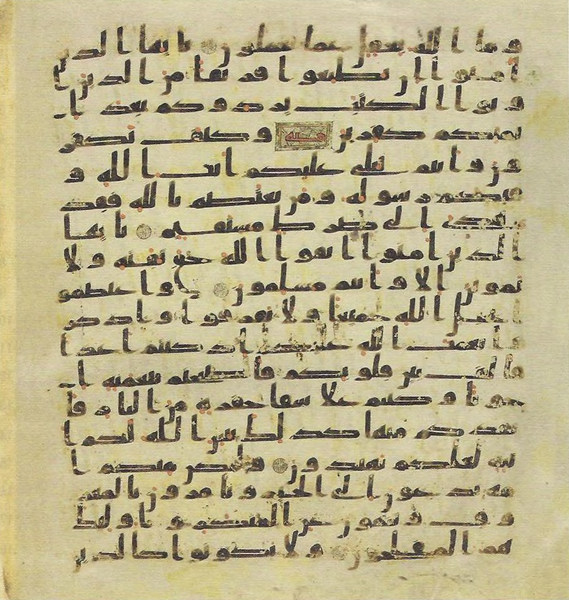 و ما الله بغفل عما تعملون يايها الذين
امنوا ان تطيعوا فريقا من الذين ا
وتوا الكتب يردوكم بعد ا
يمنكم كفرين وكيف تكفر
ون وانتم تتلى عليكم ايت الله و
فيكم رسوله ومن يعتصم بالله فقد
هدي الى صرط مستقيم يايها
الذين امنوا اتقوا الله حق تقته ولا
تموتن الا وانتم مسلمون واعتصمو
ا بحبل الله جميعا ولا تفرقوا واذكر
وا نعمت الله عليكم اذ كنتم اعدا
فالف بين قلوبكم فاصبحتم بنعمته ا
خونا وكنتم علا شفا حفرة من النار فا
نقذكم منها كذلك يبين الله لكم ا
يته لعلكم تهتدون ولتكن منكم ا
مة يدعون الى الخير ويامرون بالمعر
وف وينهون عن المنكر واولئك
هم المفلحون ولا تكونوا كالذين